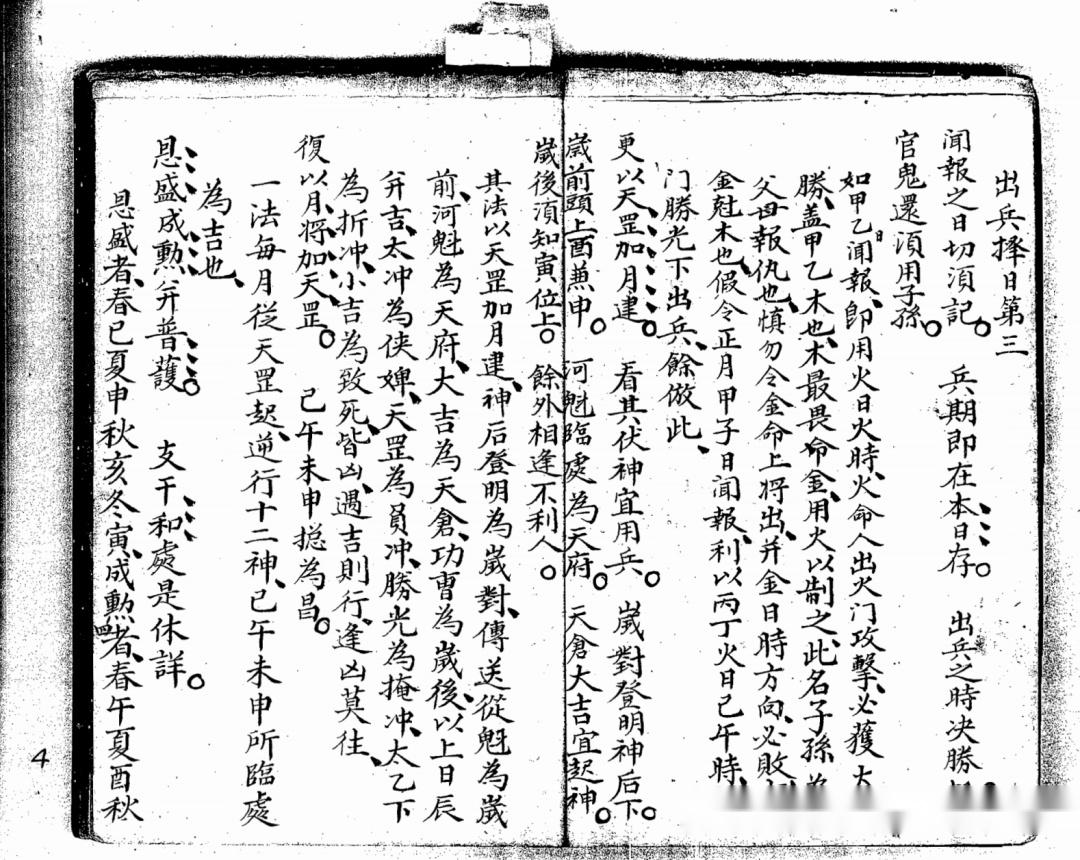 出兵擇日第三
聞報之日切須記 兵期即在本日存 出兵之時決勝
官鬼還須用子孫
如甲乙日聞報即用火日火時火命人出火门攻擊必獲大
勝盖甲乙木也木最畏命金用火以制之此名子孫為
父母報仇也慎勿令金命上將出并金日時方向必敗
金尅木也假令正月甲子日聞報利以丙丁火日巳午時
門勝光下出兵餘倣此
更以天罡加月建 看其伏神宜用兵 嵗對登明神后下
嵗前頭上酉蒸申 河魁臨處為天府 天倉大吉宜起神
嵗後須知寅位上 餘外相逢不利人
其法以天罡加月建神后登明為嵗對傳送從魁為嵗
前河魁為天府大吉為天倉功曹為嵗後以上日辰
并吉太冲為侠婢天罡為員冲勝光為掩冲太乙下
為折冲小吉為致死皆凶遇吉則行逢凶莫往
復以月將加天罡 巳午未申捴為昌
一法每月從天罡起逆行十二神巳午未申所臨處
為吉也
恩盛成勲并普護 支干和處是休詳
恩盛者春巳夏申秋亥冬寅成勲者春午夏酉秋
4